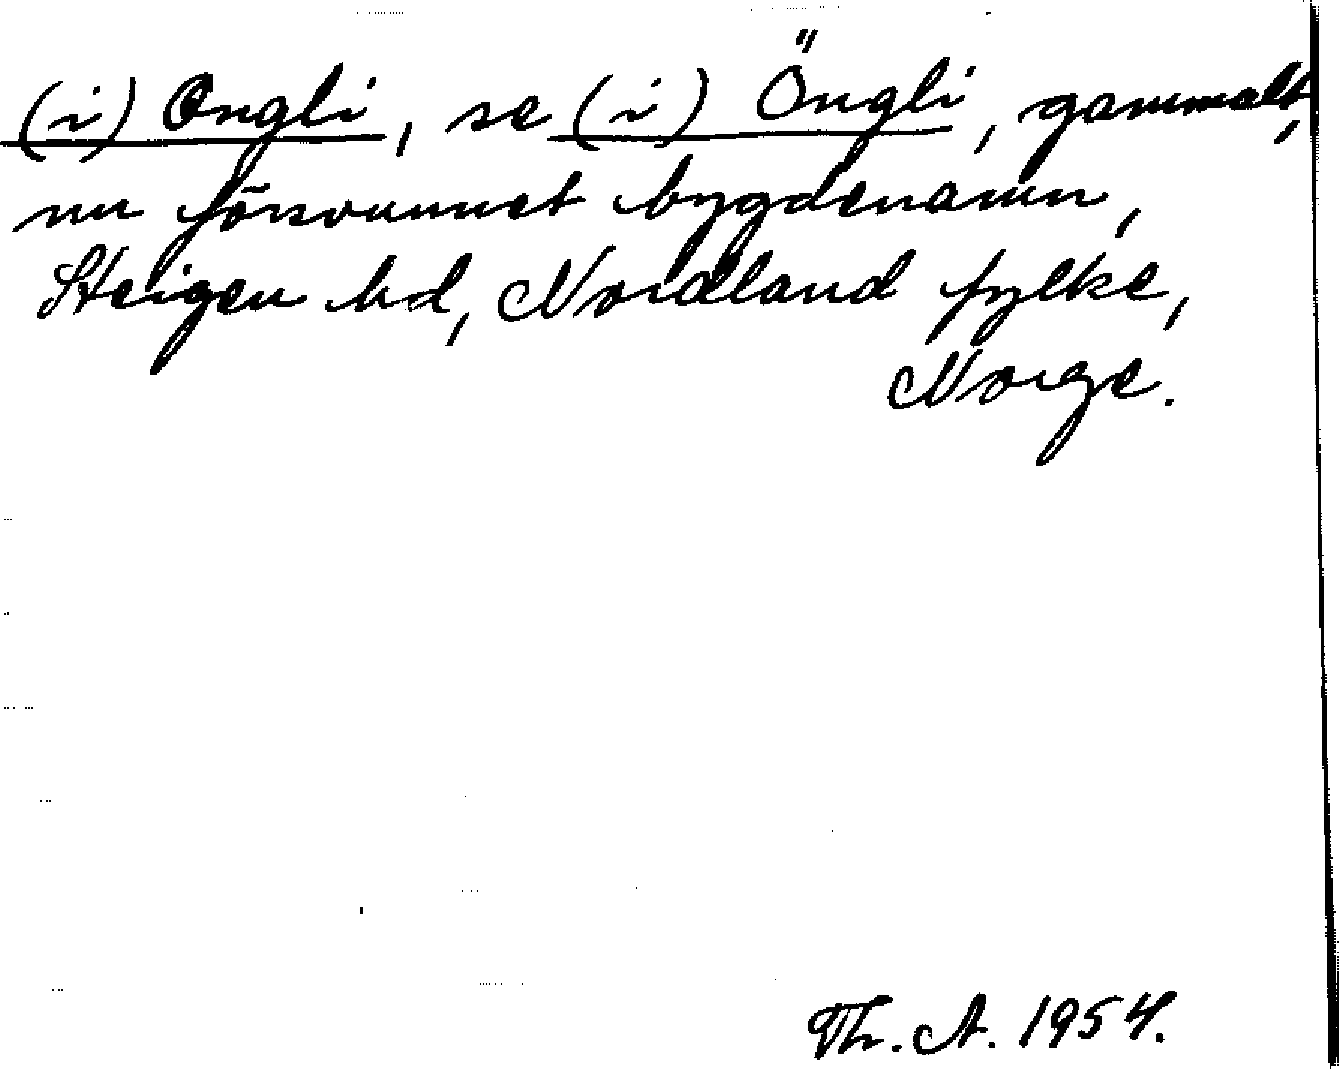 (i) Ongli, se (i) Öngli, gammalt,
nu försvunnet bygdenamn,
Steigen hd, Nordland fylke,
Norge.
Th. A. 1954.